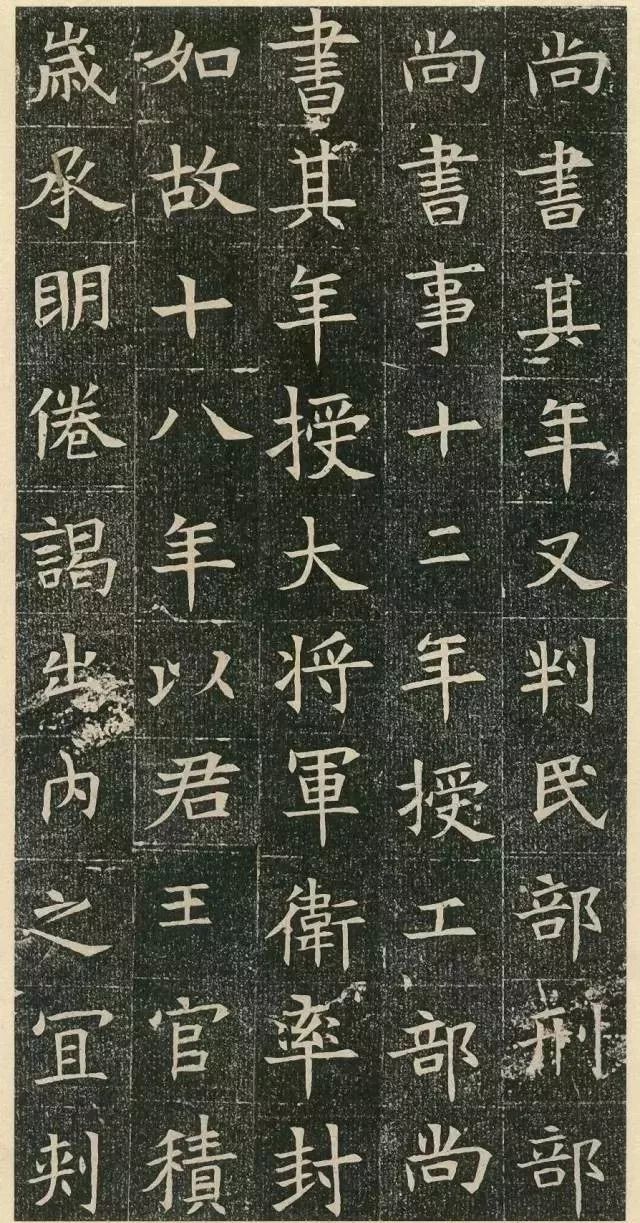 尚書其年又判民部刑部
尚書事十二年授工部尚
書其年授大將軍衛率封
如故十八年以君王官積
歲承明倦謁出內之宜刾